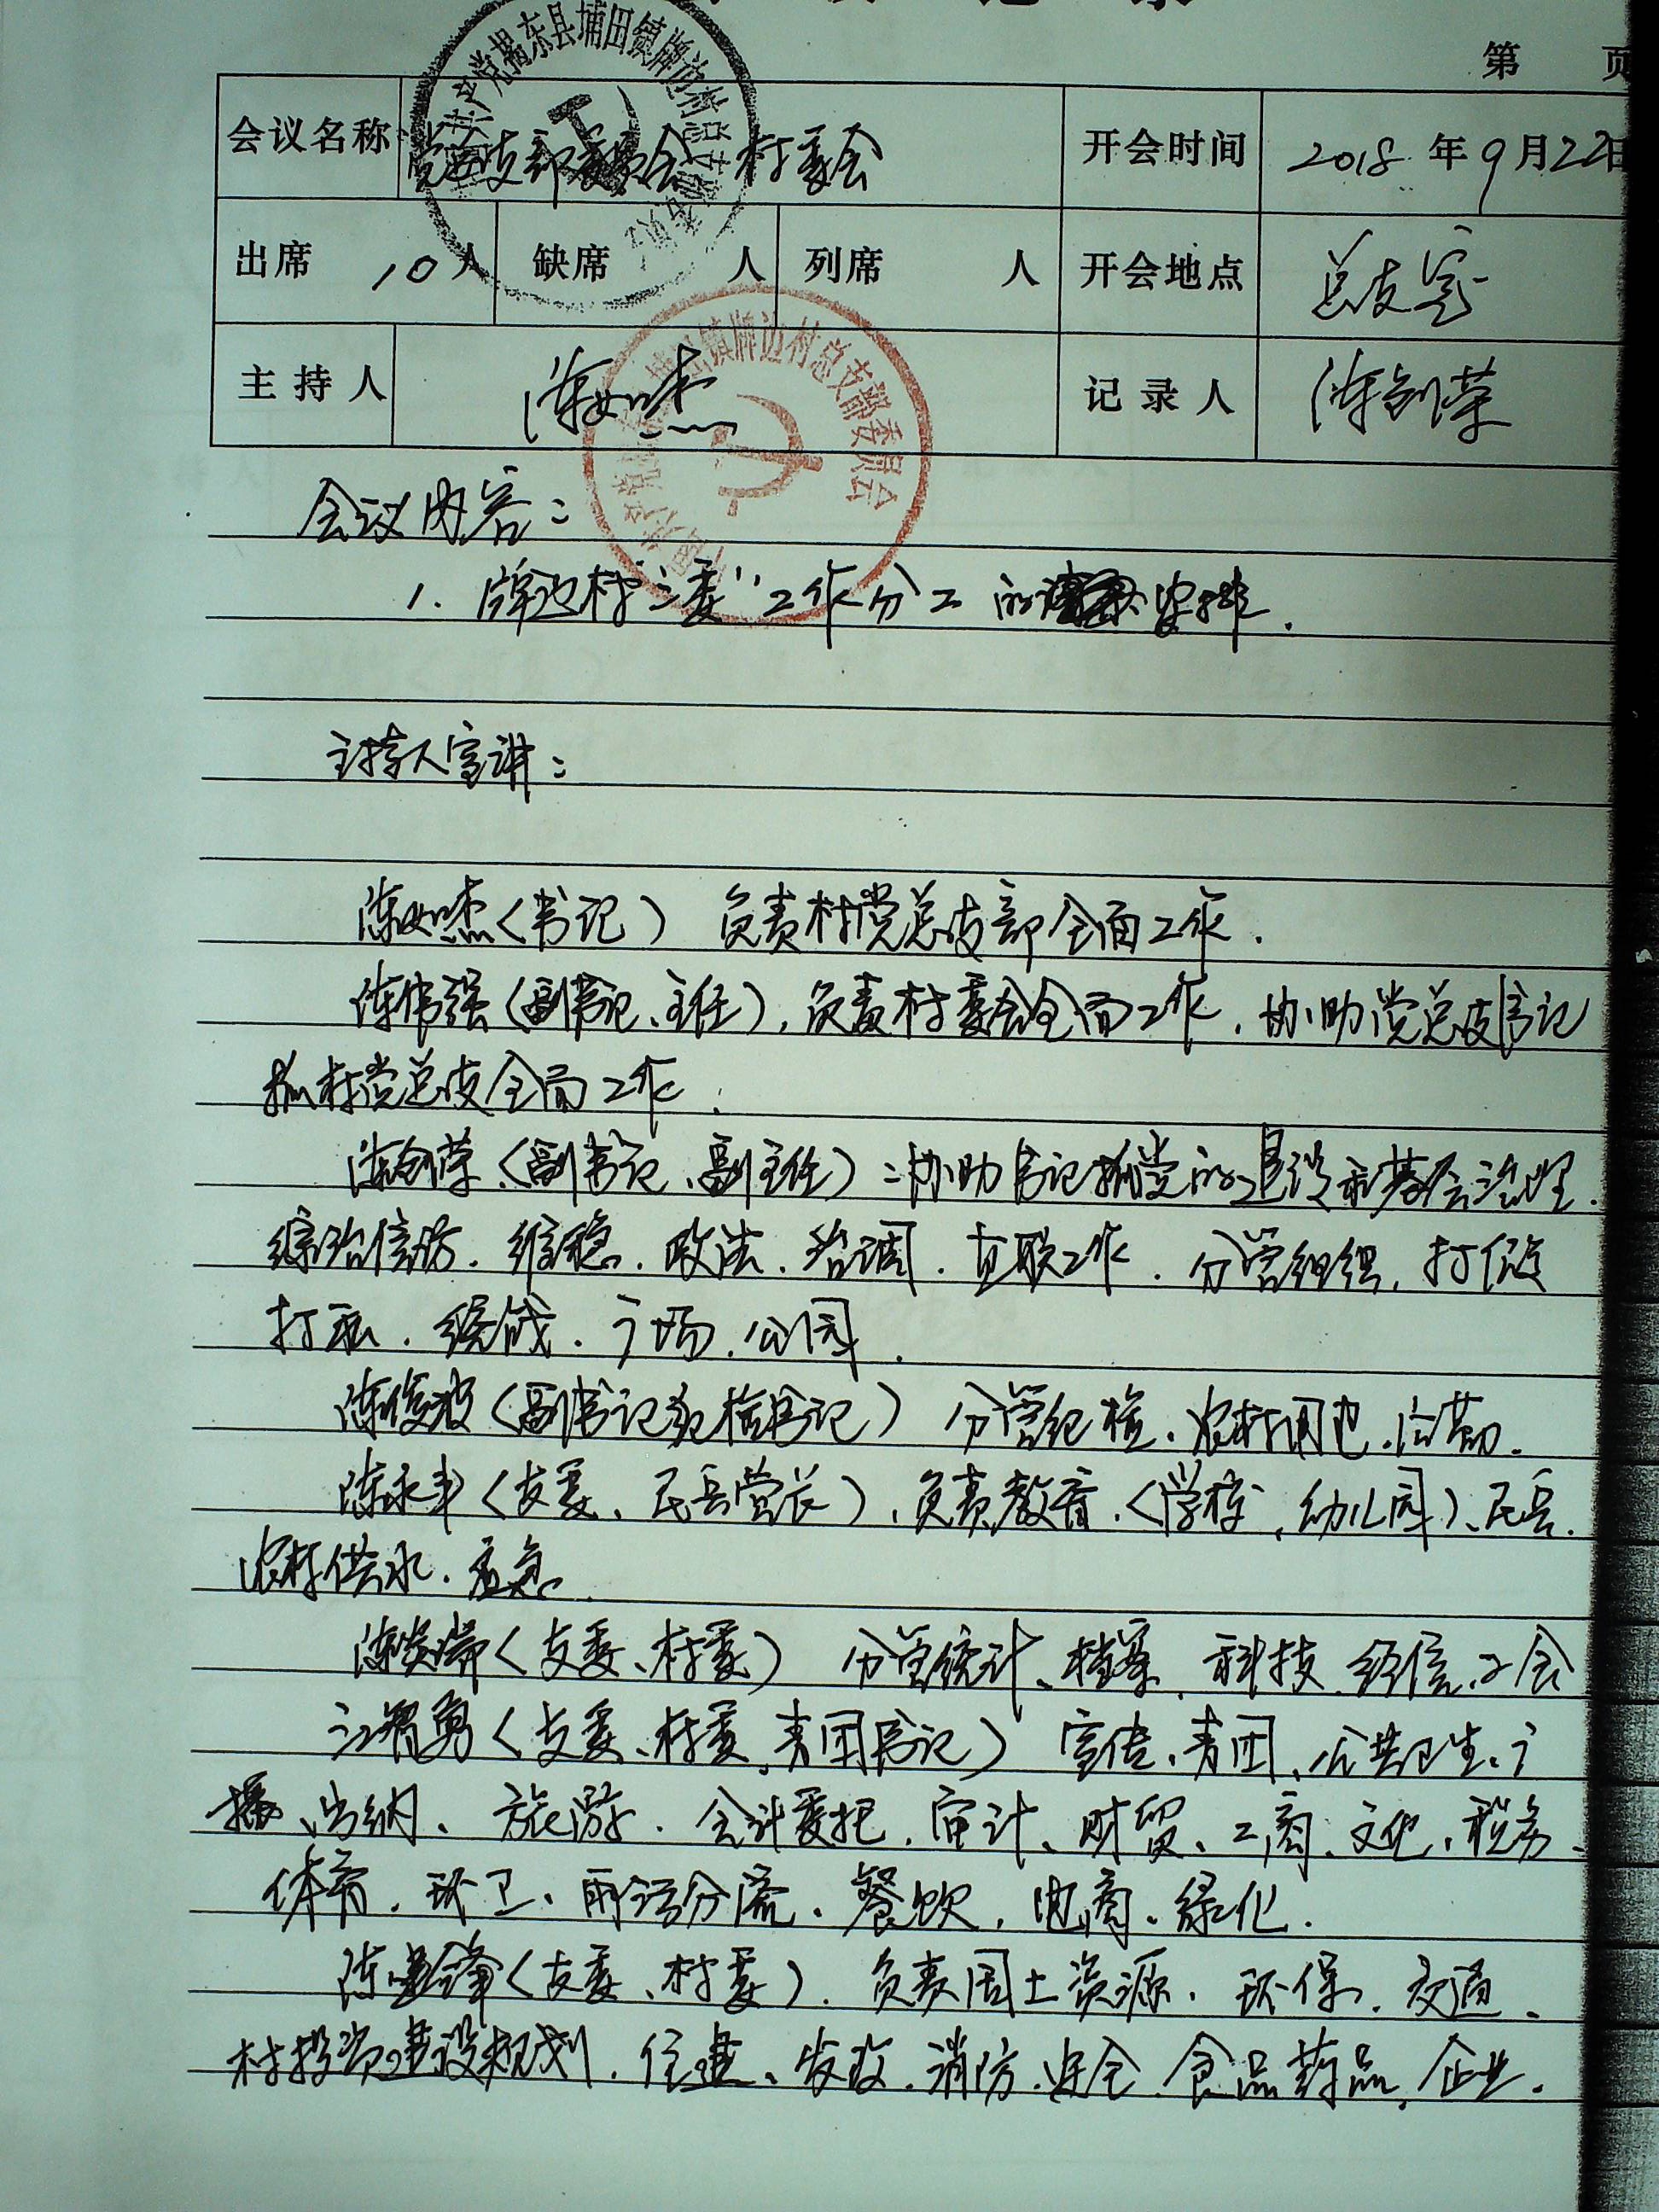 第 页
会议名称 党总支部委员会 村委会 开会时间 2018年9月22日
出席 10人 缺席 人 列席 人 开会地点 总支室
主持人 陈如杰 记录人 陈剑荣
会议内容：
1. 牌边村"三委"工作分工的安排.
主持人宣讲：
陈如杰（书记） 负责村党总支部全面工作.
陈伟强（副书记、主任），负责村委会全面工作，协助党总支书记
抓村党总支全面工作.
陈剑荣（副书记、副主任）：协助书记抓党的建设和基层治理.
综治信访.维稳.政法.治调.直联工作.分管组织，打假
打私.统战.广场.公园.
陈俊波（副书记兼纪检书记） 分管纪检、农村用电
陈永丰（支委、民兵营长），负责教育.（学校，幼儿园）、民兵.
农村供水.应急.
（支委、村委） 分管统计、档案，科技.经信.工会
江智勇（支委、村委，青团书记） 宣传、青团、公共卫生、广
播、出纳、旅游.会计委托，审计、财贸、工商、文化、税务、
体育.环卫、雨污分流、餐饮，电商、绿化.
陈建锋（支委、村委）.负责国土资源.环保.交通、
村投资建设规划.住建、发改.消防.安全.食品药品，企业.